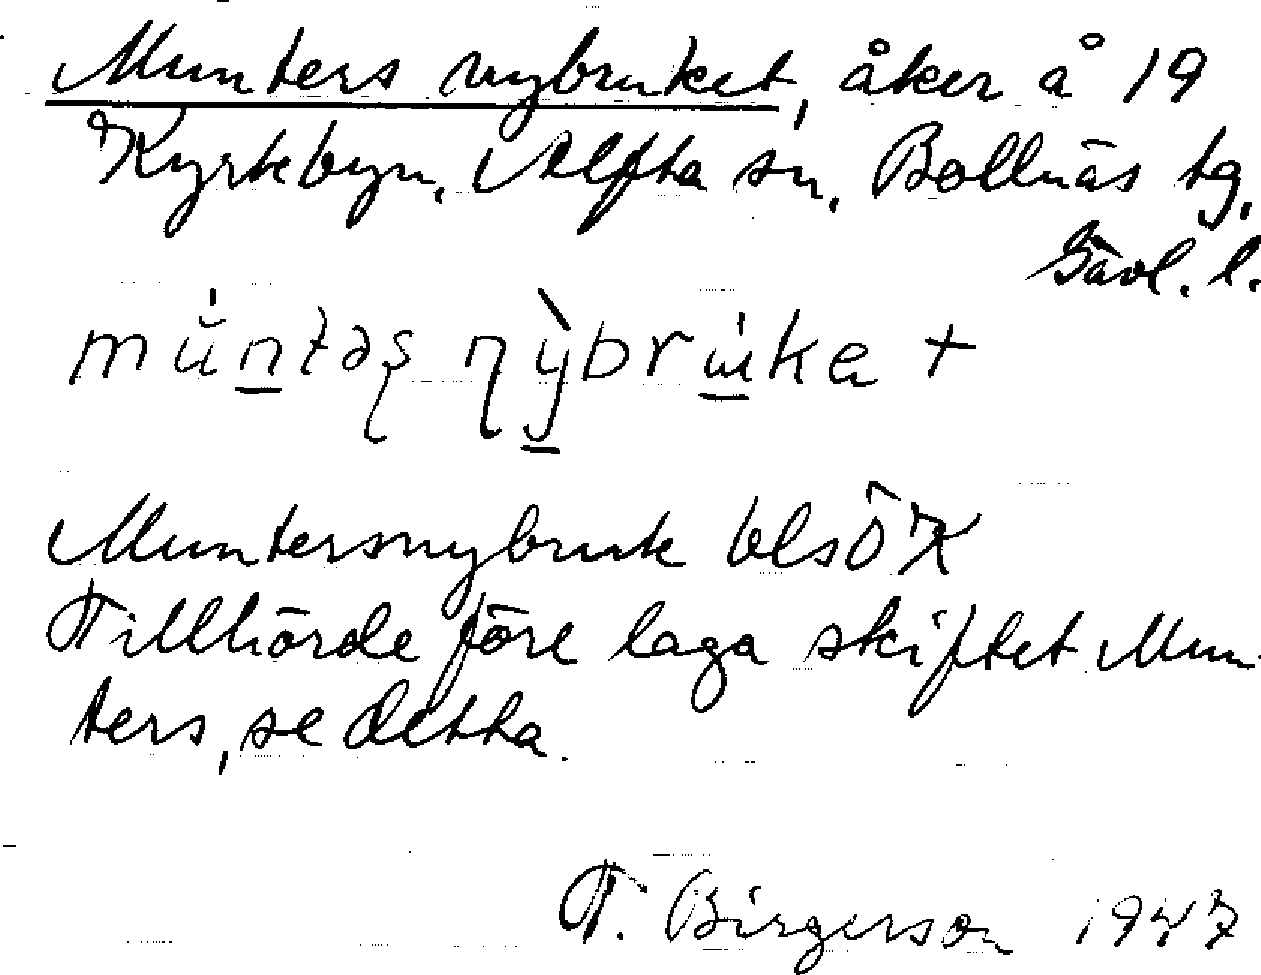 Munters nybruket, åker å 19
Kyrkbyn, Alfta sn, Bollnäs tg,
Gävl. l.
Muntersnybruk blsöK
Tillhörde före laga skiftet Mun-
ters, se detta.
T. Birgerson 1927